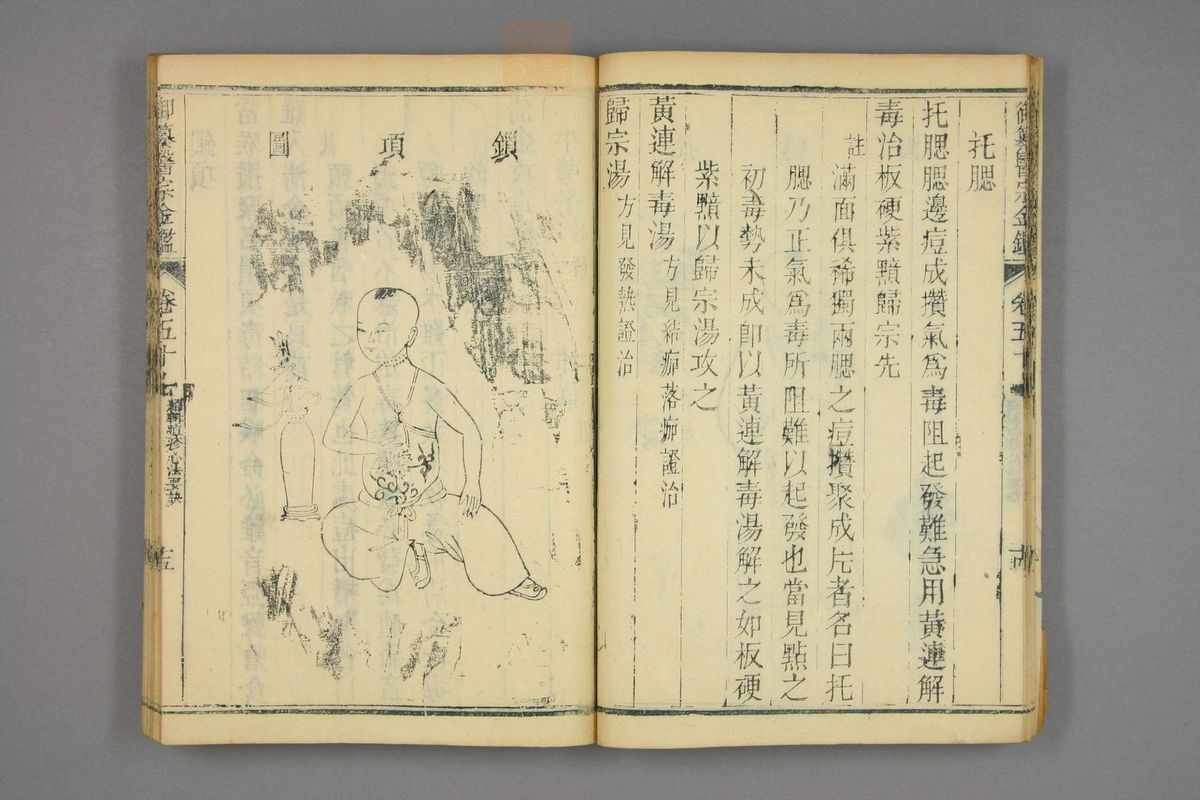 御纂醫宗金鑑 卷五十
托腮
托腮腮邊痘成攢氣爲毒阻起發難急用黃連解
毒治板硬紫黯歸宗先
註
滿面俱稀獨兩腮之痘攢聚成片者名曰托
腮乃正氣爲毒所阻難以起發也當見點之
初毒勢未成卽以黃連解毒湯解之如板硬
紫黯以歸宗湯攻之
黃連解毒湯方見結痂落痂證治
歸宗湯方見發熱證治
鎖項圖
御纂醫宗金鑑 卷五十七 編輯痘疹心法要訣 十五